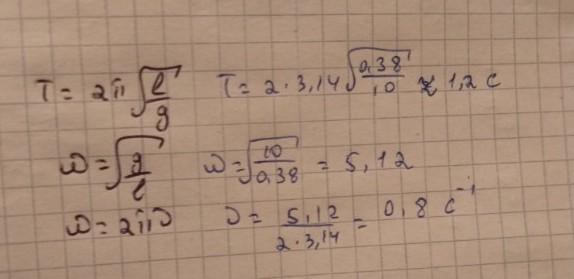 T = 2π√(l/g)   T = 2·3,14√(0,38/10) ≈ 1,2 с
ω = √(g/l)   ω = √(10/0,38) = 5,12
ω = 2πν   ν = 5,12/(2·3,14) = 0,8 с⁻¹